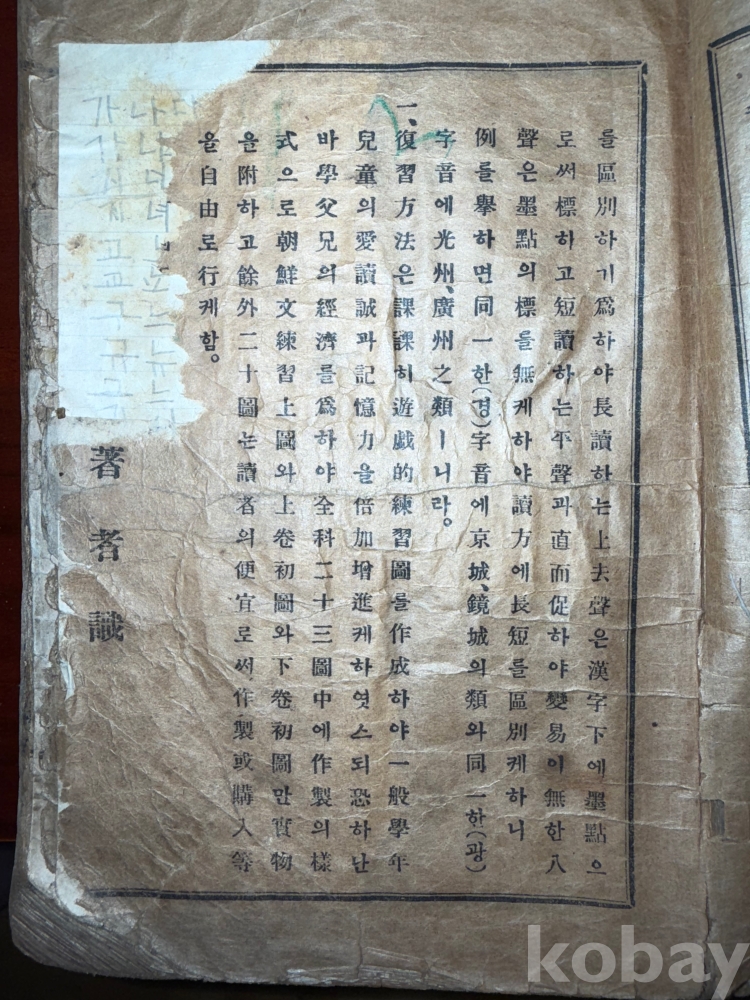 를區別하기爲하야長讀하는上去聲은漢字下에墨點으
로써標하고短讀하는平聲과直而促하야變易이無한入
聲은墨點의標를無케하야讀方에長短을區別케하니
例를擧하면同一한(경)字音에京城、鏡城의類와同一한(광)
字音에光州、廣州之類ㅣ니라。
一、復習方法은課課히遊戱的練習圖를作成하야一般學年
兒童의愛讀誠과記憶力을倍加增進케하엿스되恐하난
바學父兄의經濟를爲하야全科二十三圖中에作製의樣
式으로朝鮮文練習上圖와上卷初圖와下卷初圖만實物
을附하고餘外二十圖는讀者의便宜로써作製或購入等
을自由로行케함。
著者識
가나다
냐
녀
고교구규그
느뉴누
kobay